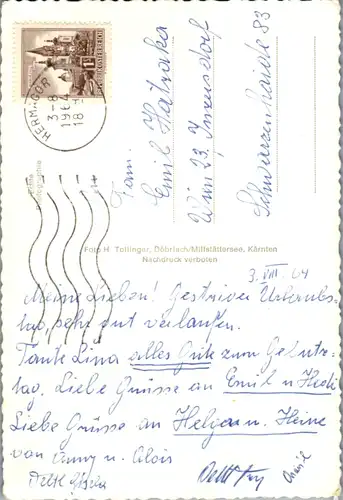 REPUBLIK ÖSTERREICH
HERMAGOR
3-8
1964
18
Fam.
Emil Hatraka
Wien 23. Inzersdorf
Schwarzenhaide 83
Echte Photographie
Foto H. Tollinger, Döbriach/Millstättersee, Kärnten
Nachdruck verboten
3. VIII. 64
Meine Lieben! Gestriger Urlaubs-
tag, sehr gut verlaufen.
Tante Lina alles Gute zum Geburts-
tag. Liebe Grüsse an Emil u Hedi
Liebe Grüsse an Helga u. Heine
von Anny u. Alois